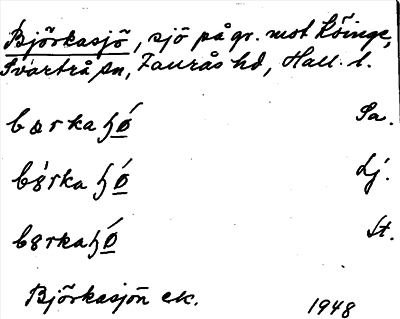 Björkasjö, sjö på gr. mot Köinge,
Svartrå sn, Faurås hd, Hall. l.
bœrkaɧǿ Sa.
bɞ̀rkaɧǿ Lj.
bɞrkaɧǿ St.
Björkasjön ek. 1948